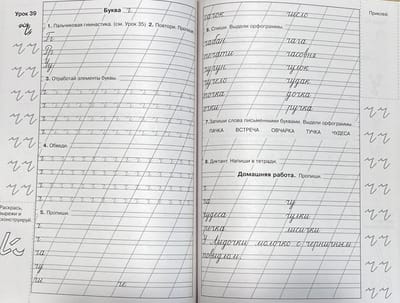 Урок 39
Буква ч
1. Пальчиковая гимнастика. (см. Урок 35) 2. Повтори. Пропиши.
3. Отработай элементы буквы.
4. Обведи.
Раскрась,
вырежи и
сконструируй.
5. Пропиши.
ч
ч
ча
чу
чи
че
число
6. Спиши. Выдели орфограммы.
чага
часовня
чулок
чудак
дочка
ручка
7. Запиши слова письменными буквами. Выдели орфограммы.
ПАЧКА ВСТРЕЧА ОВЧАРКА ТУЧКА ЧУДЕСА
8. Диктант. Напиши в тетради.
Домашняя работа. Пропиши.
ч
ча чу
чудеса чулки
речка лисички
У Лидочки молочко с черничным
повидлом.